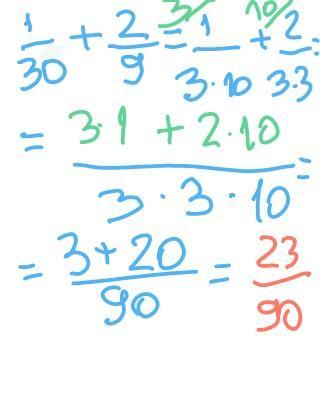 3/ 10/
1/30 + 2/9 = 1/(3·10) + 2/(3·3) =
= (3·1 + 2·10)/(3·3·10) =
= (3+20)/90 = 23/90